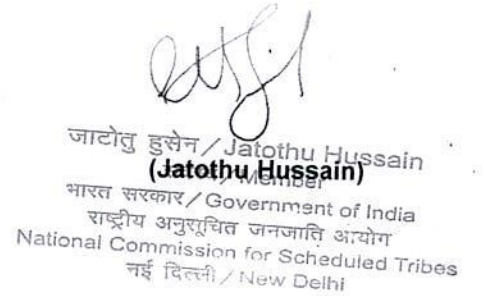 जाटोतु हुसेन / Jatothu Hussain
(Jatothu Hussain)
/ Member
भारत सरकार / Government of India
राष्ट्रीय अनुसूचित जनजाति आयोग
National Commission for Scheduled Tribes
नई दिल्ली / New Delhi